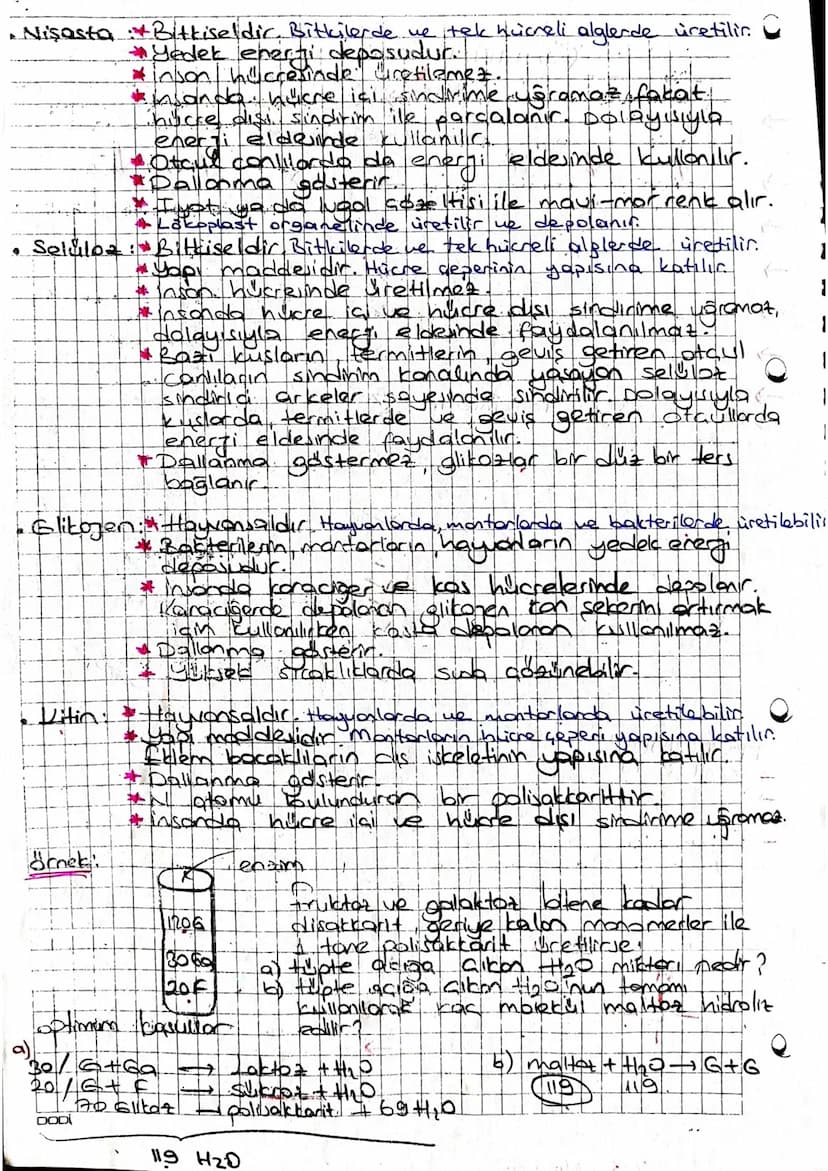 • Nişasta :* Bitkiseldir. Bitkilerde ve tek hücreli alglerde üretilir.
* Yedek enerji deposudur.
* İnsan hücresinde üretilemez.
* İnsanda hücre içi sindirime uğramaz, fakat
hücre dışı sindirim ile parçalanır. Dolayısıyla
enerji eldesinde kullanılır.
* Otçul canlılarda da enerji eldesinde kullanılır.
* Dallanma gösterir.
* İyot ya da lugol çözeltisi ile mavi-mor renk alır.
* Lökoplast organelinde üretilir ve depolanır.
• Selüloz :* Bitkiseldir. Bitkilerde ve tek hücreli alglerde üretilir.
* Yapı maddesidir. Hücre çeperinin yapısına katılır.
* İnsan hücresinde üretilmez.
* İnsanda hücre içi ve hücre dışı sindirime uğramaz,
dolayısıyla enerji eldesinde faydalanılmaz.
* Bazı kuşların, termitlerin, geviş getiren otçul
canlıların sindirim kanalında yaşayan selüloz
sindirici arkeler sayesinde sindirilir. Dolayısıyla
kuşlarda, termitlerde ve geviş getiren otçullarda
enerji eldesinde faydalanılır.
* Dallanma göstermez, glikozlar bir düz bir ters
bağlanır.
• Glikojen :* Hayvansaldır. Hayvanlarda, mantarlarda ve bakterilerde üretilebilir
* Bakterilerin, mantarların, hayvanların yedek enerji
deposudur.
* İnsanda karaciğer ve kas hücrelerinde depolanır.
Karaciğerde depolanan glikojen kan şekerini artırmak
için kullanılırken kasta depolanan kullanılmaz.
* Dallanma gösterir.
* Yüksek sıcaklıklarda suda çözünebilir.
• Kitin : * Hayvansaldır. Hayvanlarda ve mantarlarda üretilebilir
* Yapı maddesidir. Mantarların hücre çeperi yapısına katılır.
Eklem bacaklıların dış iskeletinin yapısına katılır.
* Dallanma gösterir.
* N atomu bulunduran bir polisakkarittir.
* İnsanda hücre içi ve hücre dışı sindirime uğramaz.
Örnek:
enzim
120G
30Ga
20F
optimum koşullar
Fruktoz ve galaktoz bitene kadar
disakkarit, geriye kalan monomerler ile
1 tane polisakkarit üretilirse;
a) tüpte açığa çıkan H2O miktarı nedir?
b) tüpte açığa çıkan H2O'nun tamamı
kullanılarak kaç molekül maltoz hidroliz
edilir?
a)
30/ G+Ga → Laktoz + H2O
20/ G+ F → Sükroz + H2O
70 Glikoz → polisakkarit + 69 H2O
DODİ
119 H2O
b) maltoz + H2O → G+G
119 119